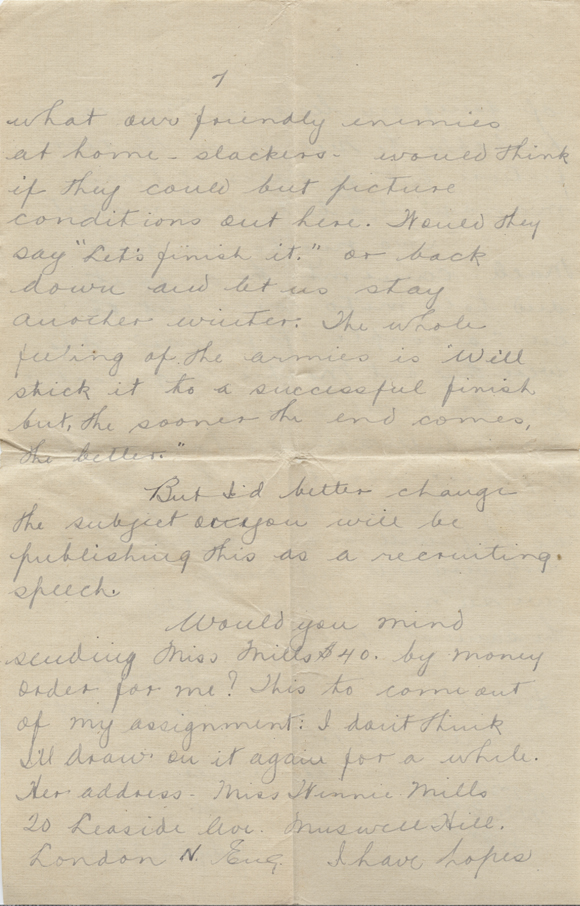 7
what our friendly enemies
at home - slackers - would think
if they could but picture
conditions out here. Would they
say "Let's finish it." or back
down and let us stay
another winter. The whole
feeling of the armies is "We'll
stick it to a successful finish
but, the sooner the end comes,
the better."
But I'd better change
the subject or you will be
publishing this as a recruiting
speech.
Would you mind
sending Miss Mills $40. by money
order for me? This to come out
of my assignment: I don't think
I'll draw on it again for a while.
Her address - Miss Winnie Mills
20 Leaside Ave. Muswell Hill.
London N. Eng. I have hopes